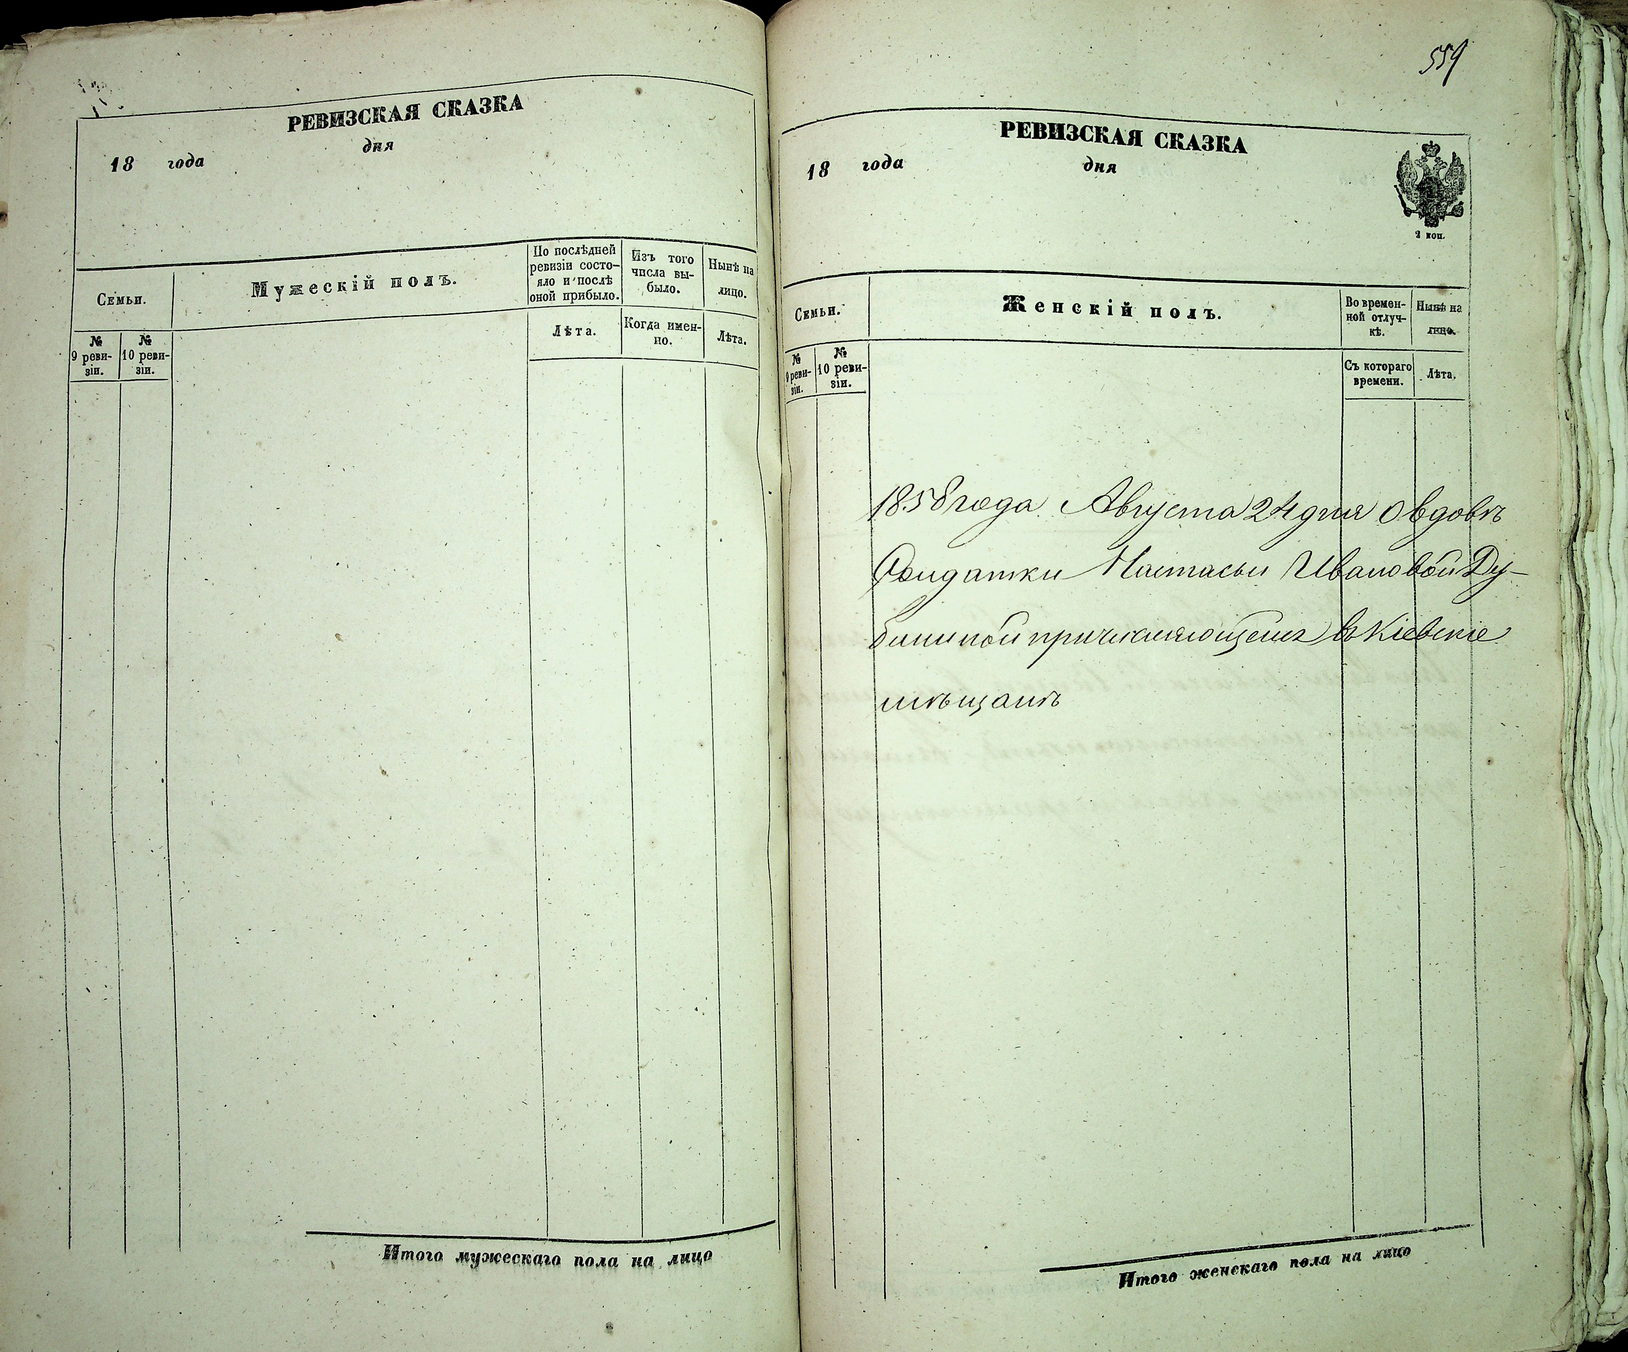 РЕВИЗСКАЯ СКАЗКА
18 года дня
Семьи.
Мужескій полъ.
По послѣдней
ревизіи состо-
яло и послѣ
оной прибыло.
Изъ того
числа вы-
было.
Нынѣ на
лицо.
№
9 реви-
зіи.
№
10 реви-
зіи.
Лѣта.
Когда имен-
но.
Лѣта.
Итого мужескаго пола на лицо
559
РЕВИЗСКАЯ СКАЗКА
18 года дня
2 коп.
Семьи.
Женскій полъ.
Во времен-
ной отлуч-
кѣ.
Нынѣ на
лицо.
№
9 реви-
зіи.
№
10 реви-
зіи.
Съ котораго
времени.
Лѣта.
1858 года Августа 24 дня О вдовѣ
Солдатки Настасьи Ивановой Ду-
бининой причисляющейся въ Кіевскіе
мѣщанѣ
Итого женскаго пола на лицо